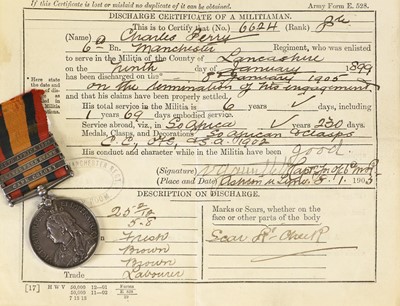 If this Certificate is lost or mislaid no duplicate of it can be obtained. Army Form R. 528.
DISCHARGE CERTIFICATE OF A MILITIAMAN.
This is to Certify that (No.) 6624 (Rank) Pte
(Name) Charles Perry
6th Bn. Manchester Regiment, who was enlisted
to serve in the Militia of the County of Lancashire
on the ninth day of January 1899
has been discharged on the 8th January 1905
on the termination of his engagement
and that his claims have been properly settled.
His total service in the Militia is 6 years days, including
1 year 69 days embodied service.
Service abroad, viz., in So Africa years 230 days
Medals, Clasps, and Decorations So African &
C.C., S.A. 1902
His conduct and character while in the Militia have been good.
(Signature)
(Place and Date) Ashton u Lyne 8.1.1905
* Here state
MANCHESTER REGT
DESCRIPTION ON DISCHARGE.
25
5.8
Fresh
Brown
Brown
Trade Labourer
Marks or Scars, whether on the
face or other parts of the body
Scar Rt Cheek
[17] H W V 50,000 12—01 Forms
50,000 11—02